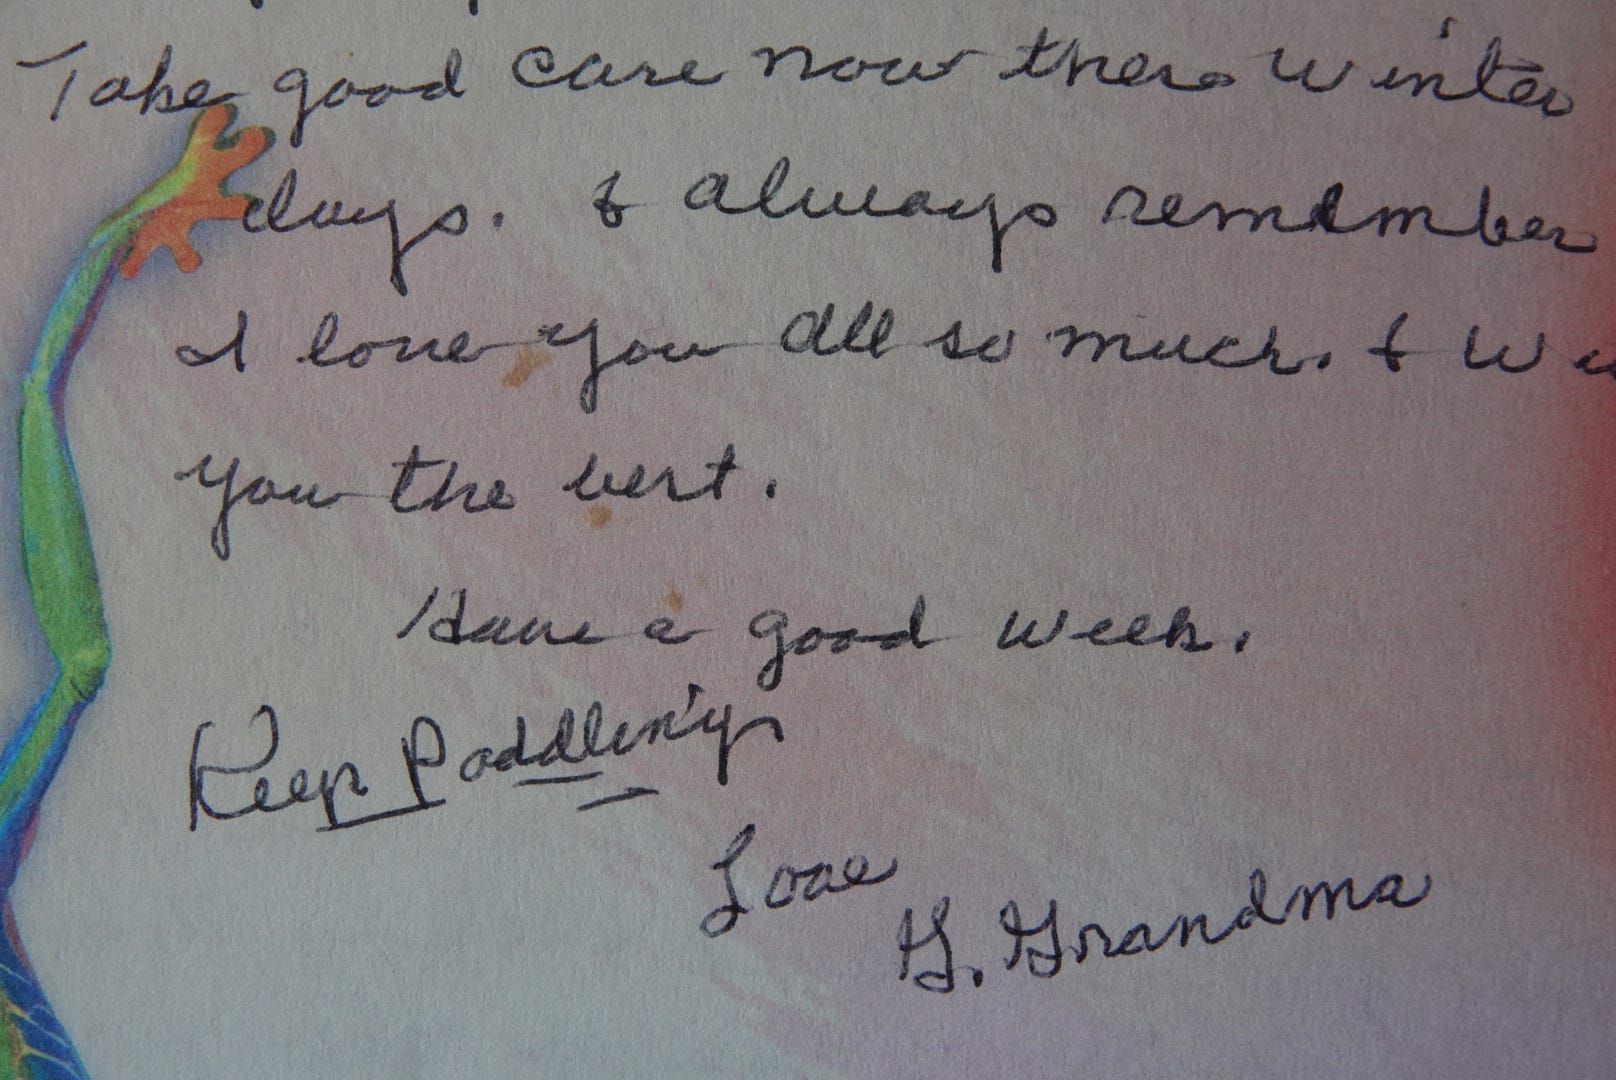 Take good care now these Winter
days. & always remember
I love you all so much. & W
you the best.
Have a good week.
Keep Paddlin'g
Love
G. Grandma